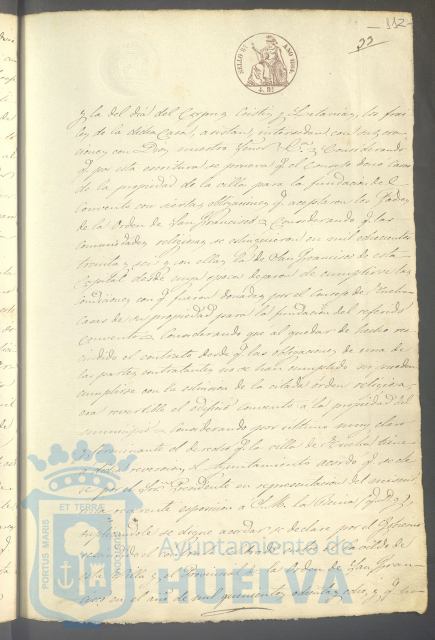 112
22
SELLO 4º AÑO 1864
y la del dia del Corpus Cristi y Letanias, los frai
les de la dicha Casa, asistan, intercedan con sus ora
ciones con Dios nuestro Señor &ª. Considerando
qᵉ por esta escritura se prueva qᵉ el Concejo donó casas
de la propiedad de la villa para la fundacion del
Convento con ciertas obligaciones qᵉ aceptaron los Padres
de la Orden de San Francisco = Considerando qᵉ las
comunidades religiosas se estinguieron en mil ochocientos
treinta y seis y con ellas la de San Francisco de esta
Capital desde cuya epoca dejaron de cumplirse las
condiciones con qᵉ fueron donadas por el Concejo de Huelva
casas de su propiedad para la fundacion del referido
Convento = Considerando que al quedar de hecho res
cindido el contrato desde qᵉ las obligaciones de una de
las partes contratantes no se han cumplido ni pueden
cumplirse con la estincion de la citada orden religiosa,
era revertible el edificio convento a la propiedad del
municipio = Considerando por ultimo muy claro
y terminante el derecho qᵉ la villa de Huelva tiene
reversion, el Ayuntamiento acordó qᵉ se ele
ve por el Sor. Presidente en representacion del mismo
reverente esposicion a S. M. la Reina (q. D. g.)
suplicandole se digne acordar se declare por el Gobierno
el Cabildo de
esta Villa y el Provincial de la Orden de San Fran
cisco en el año de mil quinientos ochenta y ocho, y qᵉ
PORTUS MARIS
ET TERRÆ
CUSTODIA
Ayuntamiento de
HUELVA